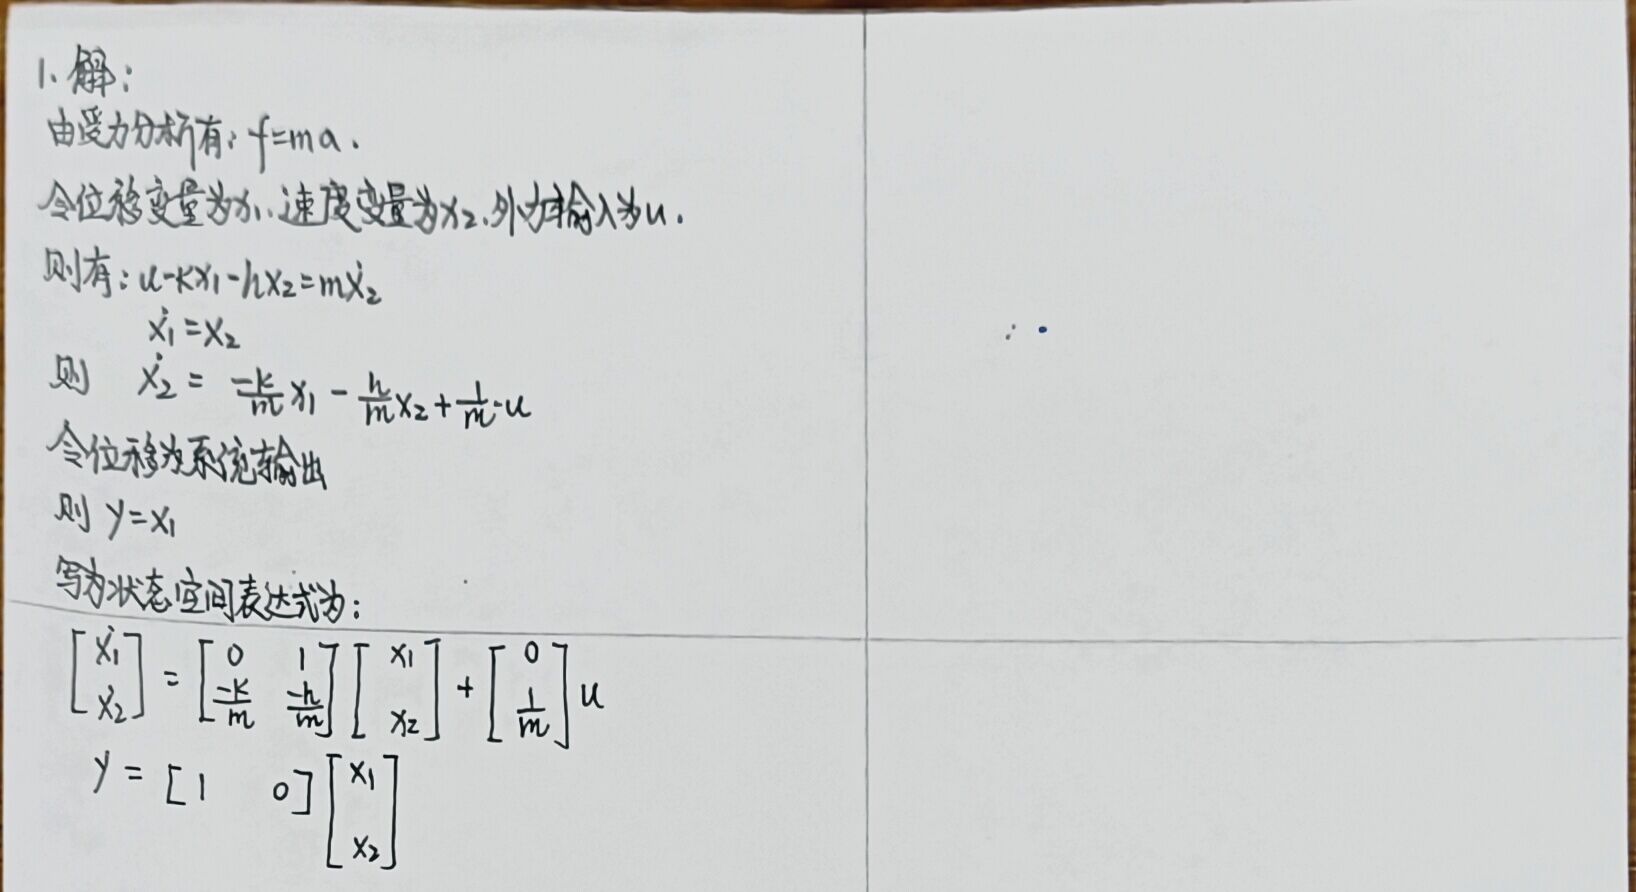 1. 解：
由受力分析有：f=ma.
令位移变量为x₁，速度变量为x₂，外力输入为u.
则有：u-kx₁-hx₂=mẋ₂
ẋ₁=x₂
则 ẋ₂ = \frac{-k}{m}x₁ - \frac{h}{m}x₂ + \frac{1}{m}·u
令位移为系统输出
则 y=x₁
写为状态空间表达式为：
\begin{bmatrix} ẋ₁ \\ ẋ₂ \end{bmatrix} = \begin{bmatrix} 0 & 1 \\ \frac{-k}{m} & \frac{-h}{m} \end{bmatrix} \begin{bmatrix} x₁ \\ x₂ \end{bmatrix} + \begin{bmatrix} 0 \\ \frac{1}{m} \end{bmatrix} u
y = [1 0] \begin{bmatrix} x₁ \\ x₂ \end{bmatrix}